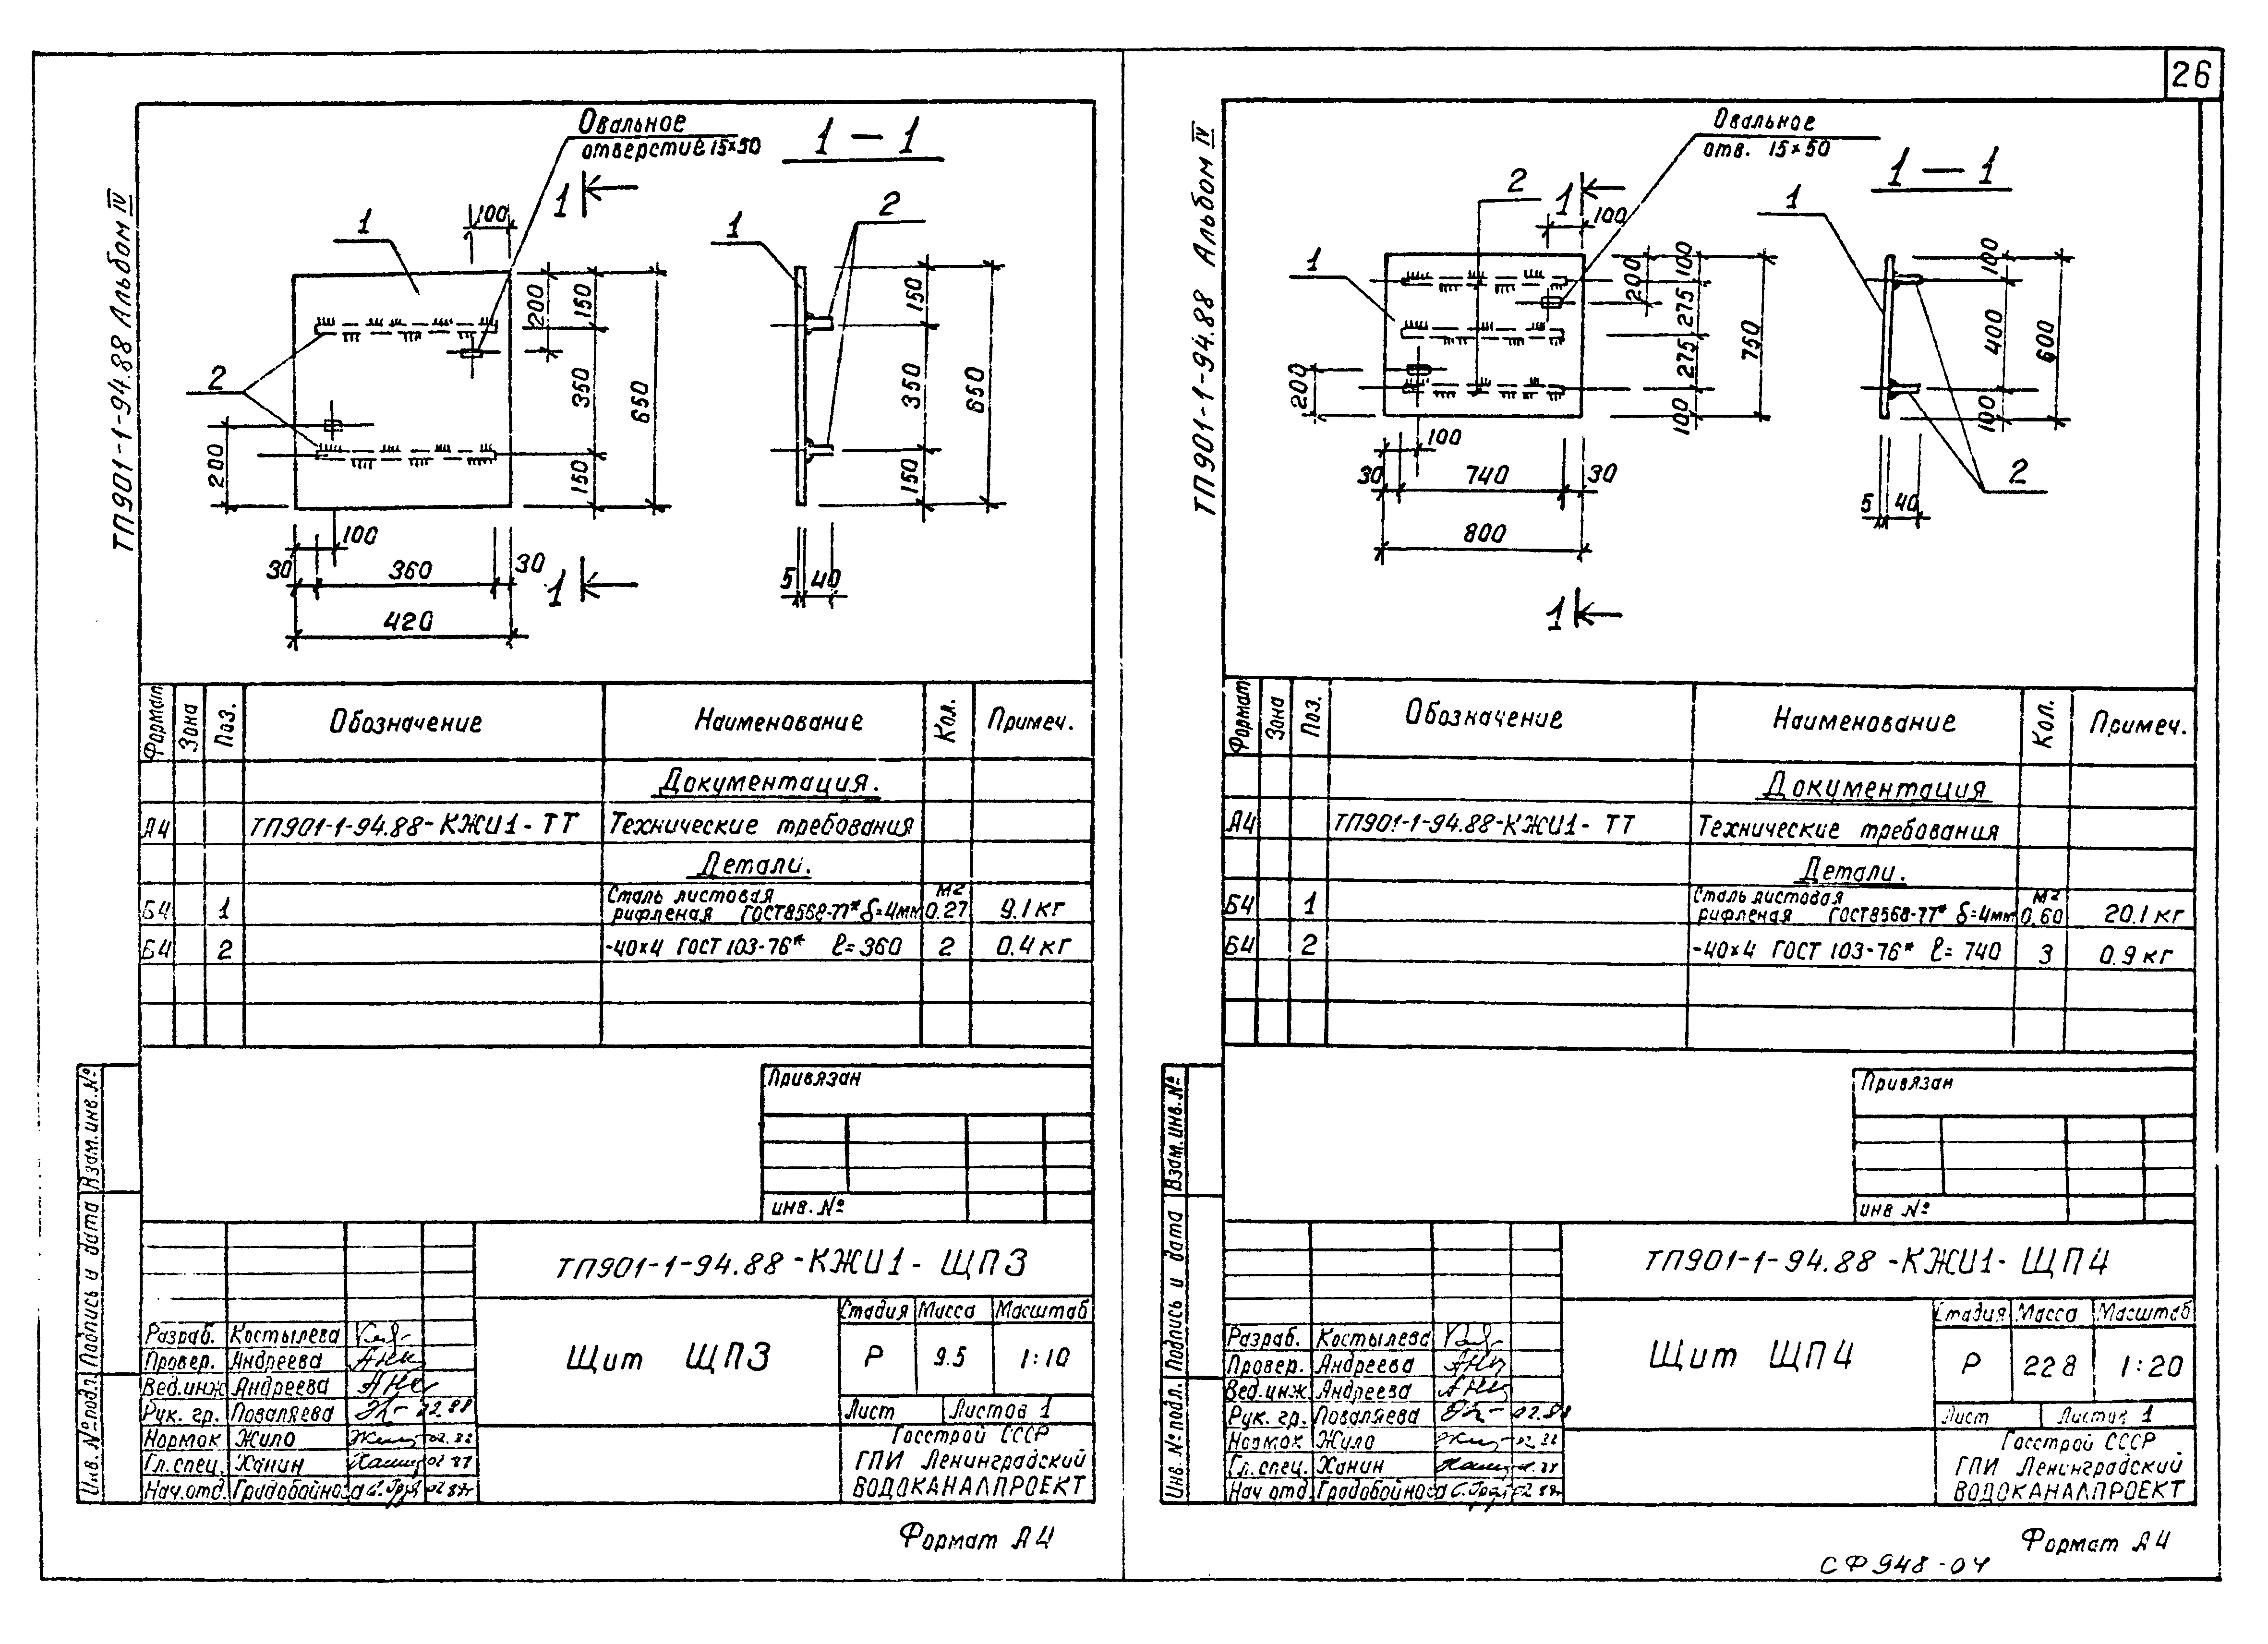 26
ТП901-1-94.88 Альбом IV
Овальное
отверстие 15×50
1 — 1
1
100
1
2
1
2
200
150
350
150
650
150
350
150
650
200
100
30
360
30
420
1
5
40
Формат
Зона
Поз.
Обозначение
Наименование
Кол.
Примеч.
Документация.
А4 ТП901-1-94.88-КЖИ1-ТТ Технические требования
Детали.
Сталь листовая м2
Б4 1 рифленая ГОСТ8568-77* δ=4мм 0.27 9.1 кг
Б4 2 -40×4 ГОСТ 103-76* ℓ=360 2 0.4 кг
Привязан
инв. №
Взам.инв.№
Подпись и дата
Инв. № подл.
ТП901-1-94.88-КЖИ1-ЩП3
Стадия Масса Масштаб
Щит ЩП3
Р 9.5 1:10
Лист Листов 1
Разраб. Костылева
Провер. Андреева
Вед.инж Андреева
Рук. гр. Поваляева 02.88
Нормок Жило
Гл.спец. Ханин
Нач.отд. Градобойнова
Госстрой СССР
ГПИ Ленинградский
ВОДОКАНАЛПРОЕКТ
Формат А4
ТП901-1-94.88 Альбом IV
Овальное
отв. 15×50
1 — 1
2
1
100
1
1
200
100
275
275
100
750
100
400
100
600
200
100
30
740
30
800
1
5
40
2
Формат
Зона
Поз.
Обозначение
Наименование
Кол.
Примеч.
Документация
А4 ТП901-1-94.88-КЖИ1-ТТ Технические требования
Детали.
Сталь листовая м2
Б4 1 рифленая ГОСТ8568-77* δ=4мм 0.60 20.1 кг
Б4 2 -40×4 ГОСТ 103-76* ℓ=740 3 0.9 кг
Привязан
инв №
Взам.инв.№
Подпись и дата
Инв.№ подл.
ТП901-1-94.88-КЖИ1-ЩП4
Стадия Масса Масштаб
Щит ЩП4
Р 22 8 1:20
Лист Листов 1
Разраб. Костылева
Провер. Андреева
Вед.инж Андреева
Рук. гр. Поваляева 02.88
Нормок Жило
Гл.спец. Ханин
Нач отд Градобойнова
Госстрой СССР
ГПИ Ленинградский
ВОДОКАНАЛПРОЕКТ
Формат А4
СФ948-04